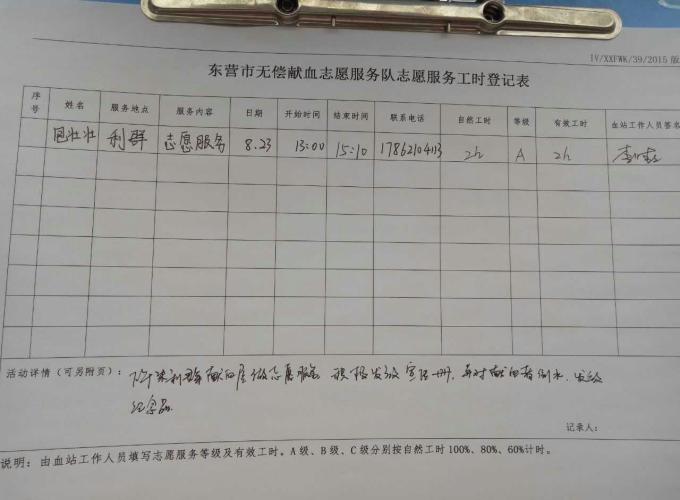 IV/XXFWK/39/2015 版
东营市无偿献血志愿服务队志愿服务工时登记表
序号 姓名 服务地点 服务内容 日期 开始时间 结束时间 联系电话 自然工时 等级 有效工时 血站工作人员签名
壮壮 利群 志愿服务 8.23 13:00 15:10 17862104113 2h A 2h
活动详情（可另附页）： 下午来利群献血屋做志愿服务 积极发放宣传册，并对献血者倒水、发放
纪念品
记录人：
说明：由血站工作人员填写志愿服务等级及有效工时。A 级、B 级、C 级分别按自然工时 100%、80%、60%计时。